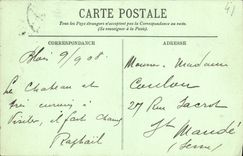 CARTE POSTALE
Tous les Pays étrangers n'acceptent pas la Correspondance au recto
(Se renseigner à la Poste)
CORRESPONDANCE
ADRESSE
Blois 9/9 08.
Le Chateau est
très curieux à
Visiter, il fait chaud
Raphaël
Madame
Coulon
27 Rue Sacrot
St Mandé
(Seine)
41